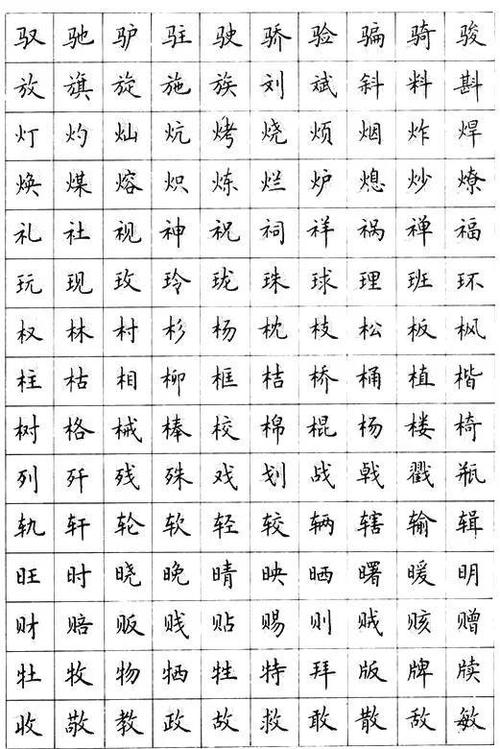 驭驰驴驻驶骄验骗骑骏
放旗旋施族刘斌斜料斟
灯灼灿炕烤烧烦烟炸焊
焕煤熔炽炼烂炉熄炒燎
礼社视神祝祠祥祸禅福
玩现玫玲珑珠球理班环
权林村杉杨枕枝松板枫
柱枯相柳框桔桥桶植楷
树格械棒校棉棍杨楼椅
列歼残殊戏划战戟戳瓶
轨轩轮软轻较辆辖输辑
旺时晓晚晴映晒曙暖明
财赔贩贱贴赐则贼赅赠
牡牧物牺牲特拜版牌牍
收敬教政故救敢散敌敏